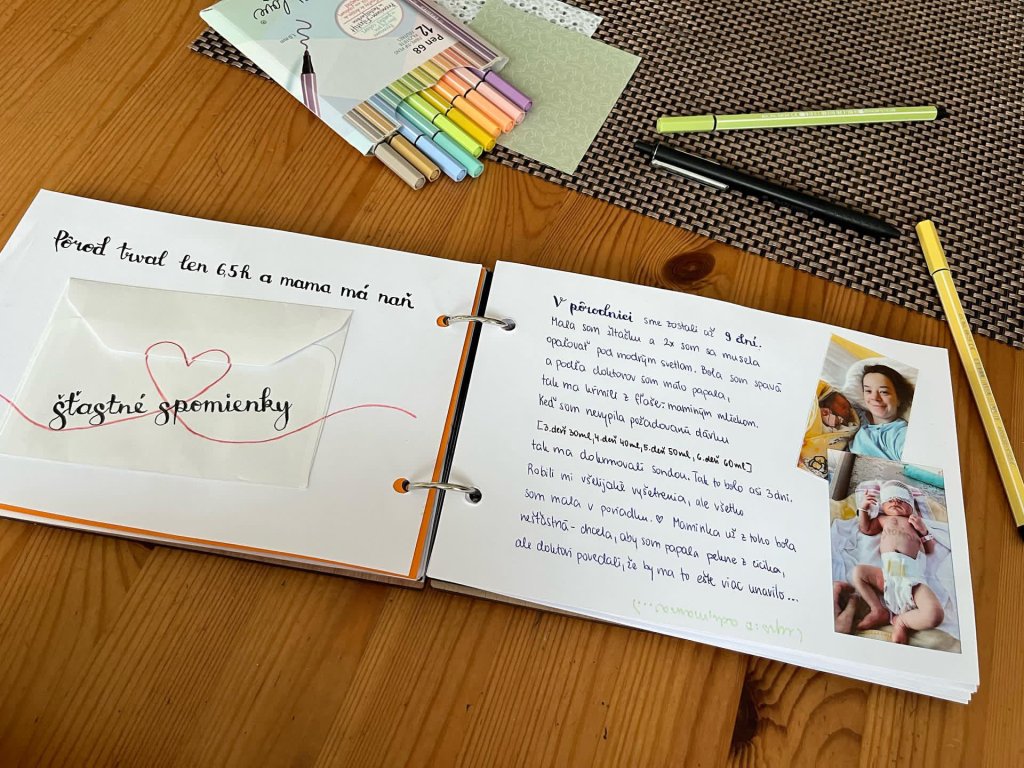 love
1,0 mm
Pen 68
12
Pôrod trval len 6,5h a mama má naň
šťastné spomienky
V pôrodnici sme zostali až 9 dní.
Mala som žltačku a 2x som sa musela
opaľovať pod modrým svetlom. Bola som spavá
a podľa doktorov som málo papala,
tak ma kŕmili z fľaše - maminým mliekom.
Keď som nevypila požadovanú dávku
[3.deň 30ml, 4.deň 40ml, 5.deň 50ml, 6.deň 60ml]
tak ma dokrmovali sondou. Tak to bolo asi 3 dni.
Robili mi všelijaké vyšetrenia, ale všetko
som mala v poriadku. ♡ Maminka už z toho bola
nešťastná - chcela, aby som papala pekne z cicíka,
ale doktori povedali, že by ma to ešte viac unavilo...